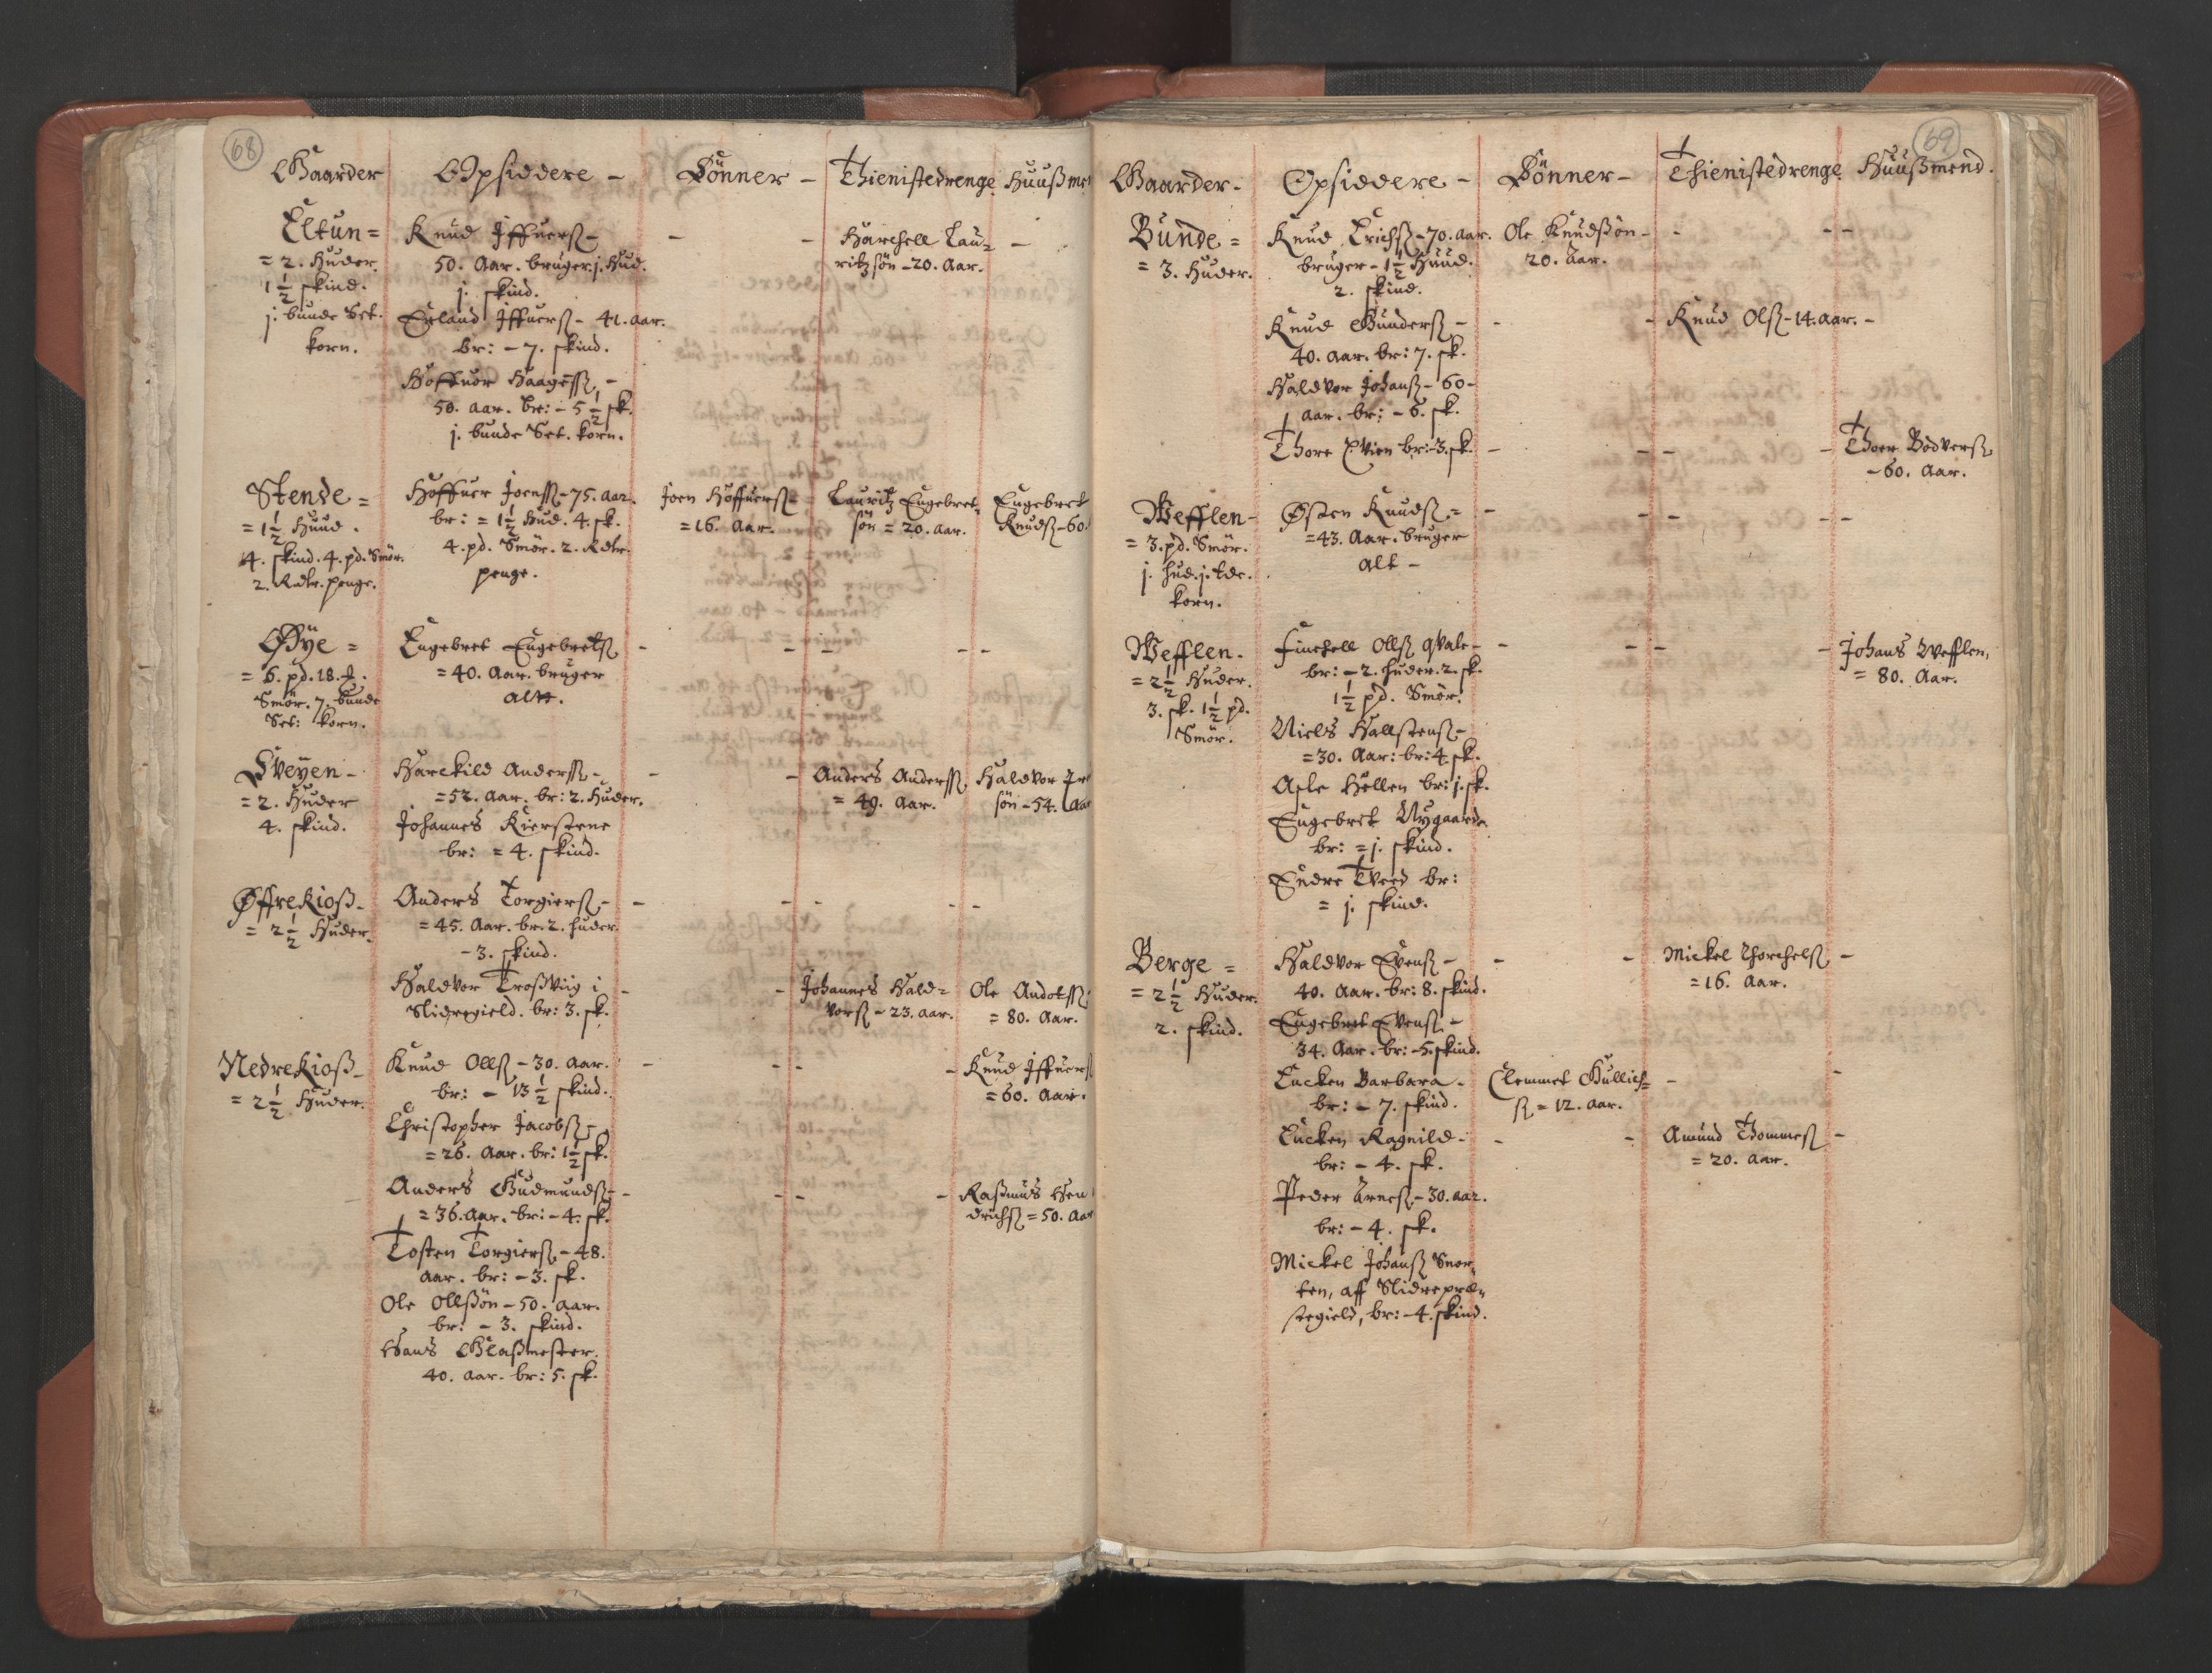 68
Gaarder Opsiddere - Sönner - Thienistedrenge Huußme
Eltun =
= 2. Huder.
1 1/2 skind.
j. bunde Set.
korn.
Knud Iffuerß -
50. Aar. bruger j. Hud.
j. skind.
Erland Iffuerß - 41. Aar.
br: - 7. skind.
Hoffuor Haagenß -
50. Aar. br: - 5 1/2 sk.
j. bunde Set. korn.
Harchell Lau=
ritzsön - 20. Aar.
Stende =
= 1 1/2 Huud.
4. skind. 4. pd. Smör.
2. Rdlr. penge.
Hoffuer Joenß - 75. aar.
br: = 1 1/2 Hud. 4. sk.
4. pd. Smör. 2. Rdlr.
penge.
Joen Hoffuerß -
= 16. Aar.
Lauritz Engebret
sön = 20. aar.
Engebret
Knudß - 60.
Øÿe =
= 6. pd. 18.
Smör. 7. bunde
Set: korn.
Engebret Engebretß
= 40. Aar. bruger
alt.
Sveyen -
= 2. Huder
4. skind.
Harckild Anderß -
= 52. Aar. br: 2. Huder.
Johannes Kierstene
br: = 4. skind.
Anders Anderß
= 49. Aar.
Haldvor
sön - 54. Aar
Øffre Kioß -
= 2 1/2 Huder.
Anders Torgierß -
= 45. Aar. br: 2. huder.
- 3. skind.
Haldvor Troßviig i
Slidregield. br: 3. sk.
Johannes Hald=
vorß - 23. aar.
Ole Andotß
= 80. Aar.
Nedre Kioß -
= 2 1/2 Huder.
Knud Ollß - 30. Aar.
br: - 13 1/2 skind.
Christopher Jacobß -
= 26. Aar. br: 1 1/2 sk.
Anders Gudmundß -
= 36. Aar. br: - 4. sk.
Tosten Torgierß - 48.
aar. br: - 3. sk.
Ole Ollßön - 50. Aar.
br: - 3. skind.
Hans Glaßmester.
40. Aar. br: 5. sk.
Knud Iffuerß
= 60. Aar.
Raßmus Hen
drichß = 50. Aar
69
Gaarder - Opsiddere - Sönner - Thienistedrenge Huußmend.
Bunde =
= 3. Huder.
Knud Erichß - 70. Aar.
bruger - 1 1/2 Huud.
2. skind.
Ole Knudßön -
20. Aar.
Knud Gunderß -
40. Aar. br: 7. sk.
Knud Olß - 14. Aar. -
Haldvor Johanß - 60 -
Aar. br: - 6. sk.
Thore Qvien br: - 3. sk.
Thoer Bodverß
- 60. Aar.
Wefflen -
= 3. pd. Smör.
j. hud. j. tde.
korn.
Østen Knudß =
= 43. Aar. bruger
alt -
Wefflen -
= 2 1/2 Huder.
3. sk. 1 1/2 pd.
Smör.
Finckell Ollß qvale -
br: - 2. huder. 2. sk.
1 1/2 pd. Smör.
Niels Hallstenß -
= 30. Aar: br: 4. sk.
Asle Hellen br: j. sk.
Engebret Nygaarde
br: = j. skind.
Endre Tveed br:
= j. skind.
Johans Wefflen,
= 80. Aar.
Berge =
= 2 1/2 Huder.
2. skind.
Haldvor Evenß -
40. Aar. br: 8. skind.
Engebret Evenß -
34. Aar. br: - 5. skind.
Encken Barbara -
br: - 7. skind.
Encken Ragnild -
br: - 4. sk.
Peder Arneß - 30. aar.
br: - 4. sk.
Mickel Johanß Snor=
ten, aff Slidrepræ=
stegield, br: - 4. skind.
Clemmet Gullich=
ß = 12. Aar.
Mickel Thorchelß -
= 16. Aar.
Amund Thommeß -
= 20. Aar.